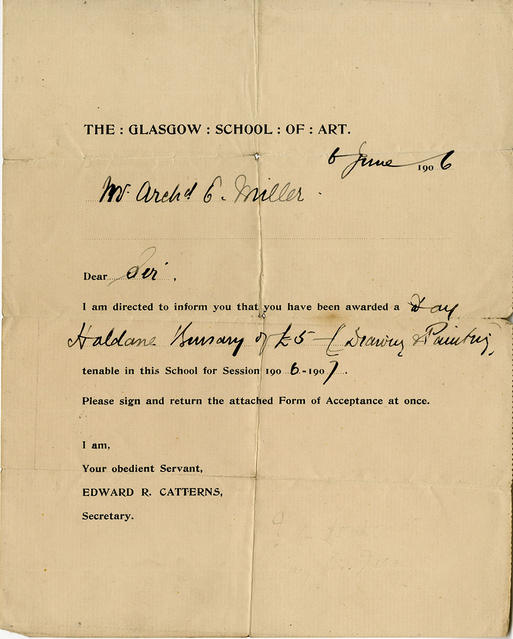 THE : GLASGOW : SCHOOL : OF : ART.
6 June 1906
Mr. Archd E. Miller.
Dear Sir.
I am directed to inform you that you have been awarded a Day
Haldane Bursary of £5 – (Drawing & Painting)
tenable in this School for Session 1906-1907.
Please sign and return the attached Form of Acceptance at once.
I am,
Your obedient Servant,
EDWARD R. CATTERNS,
Secretary.